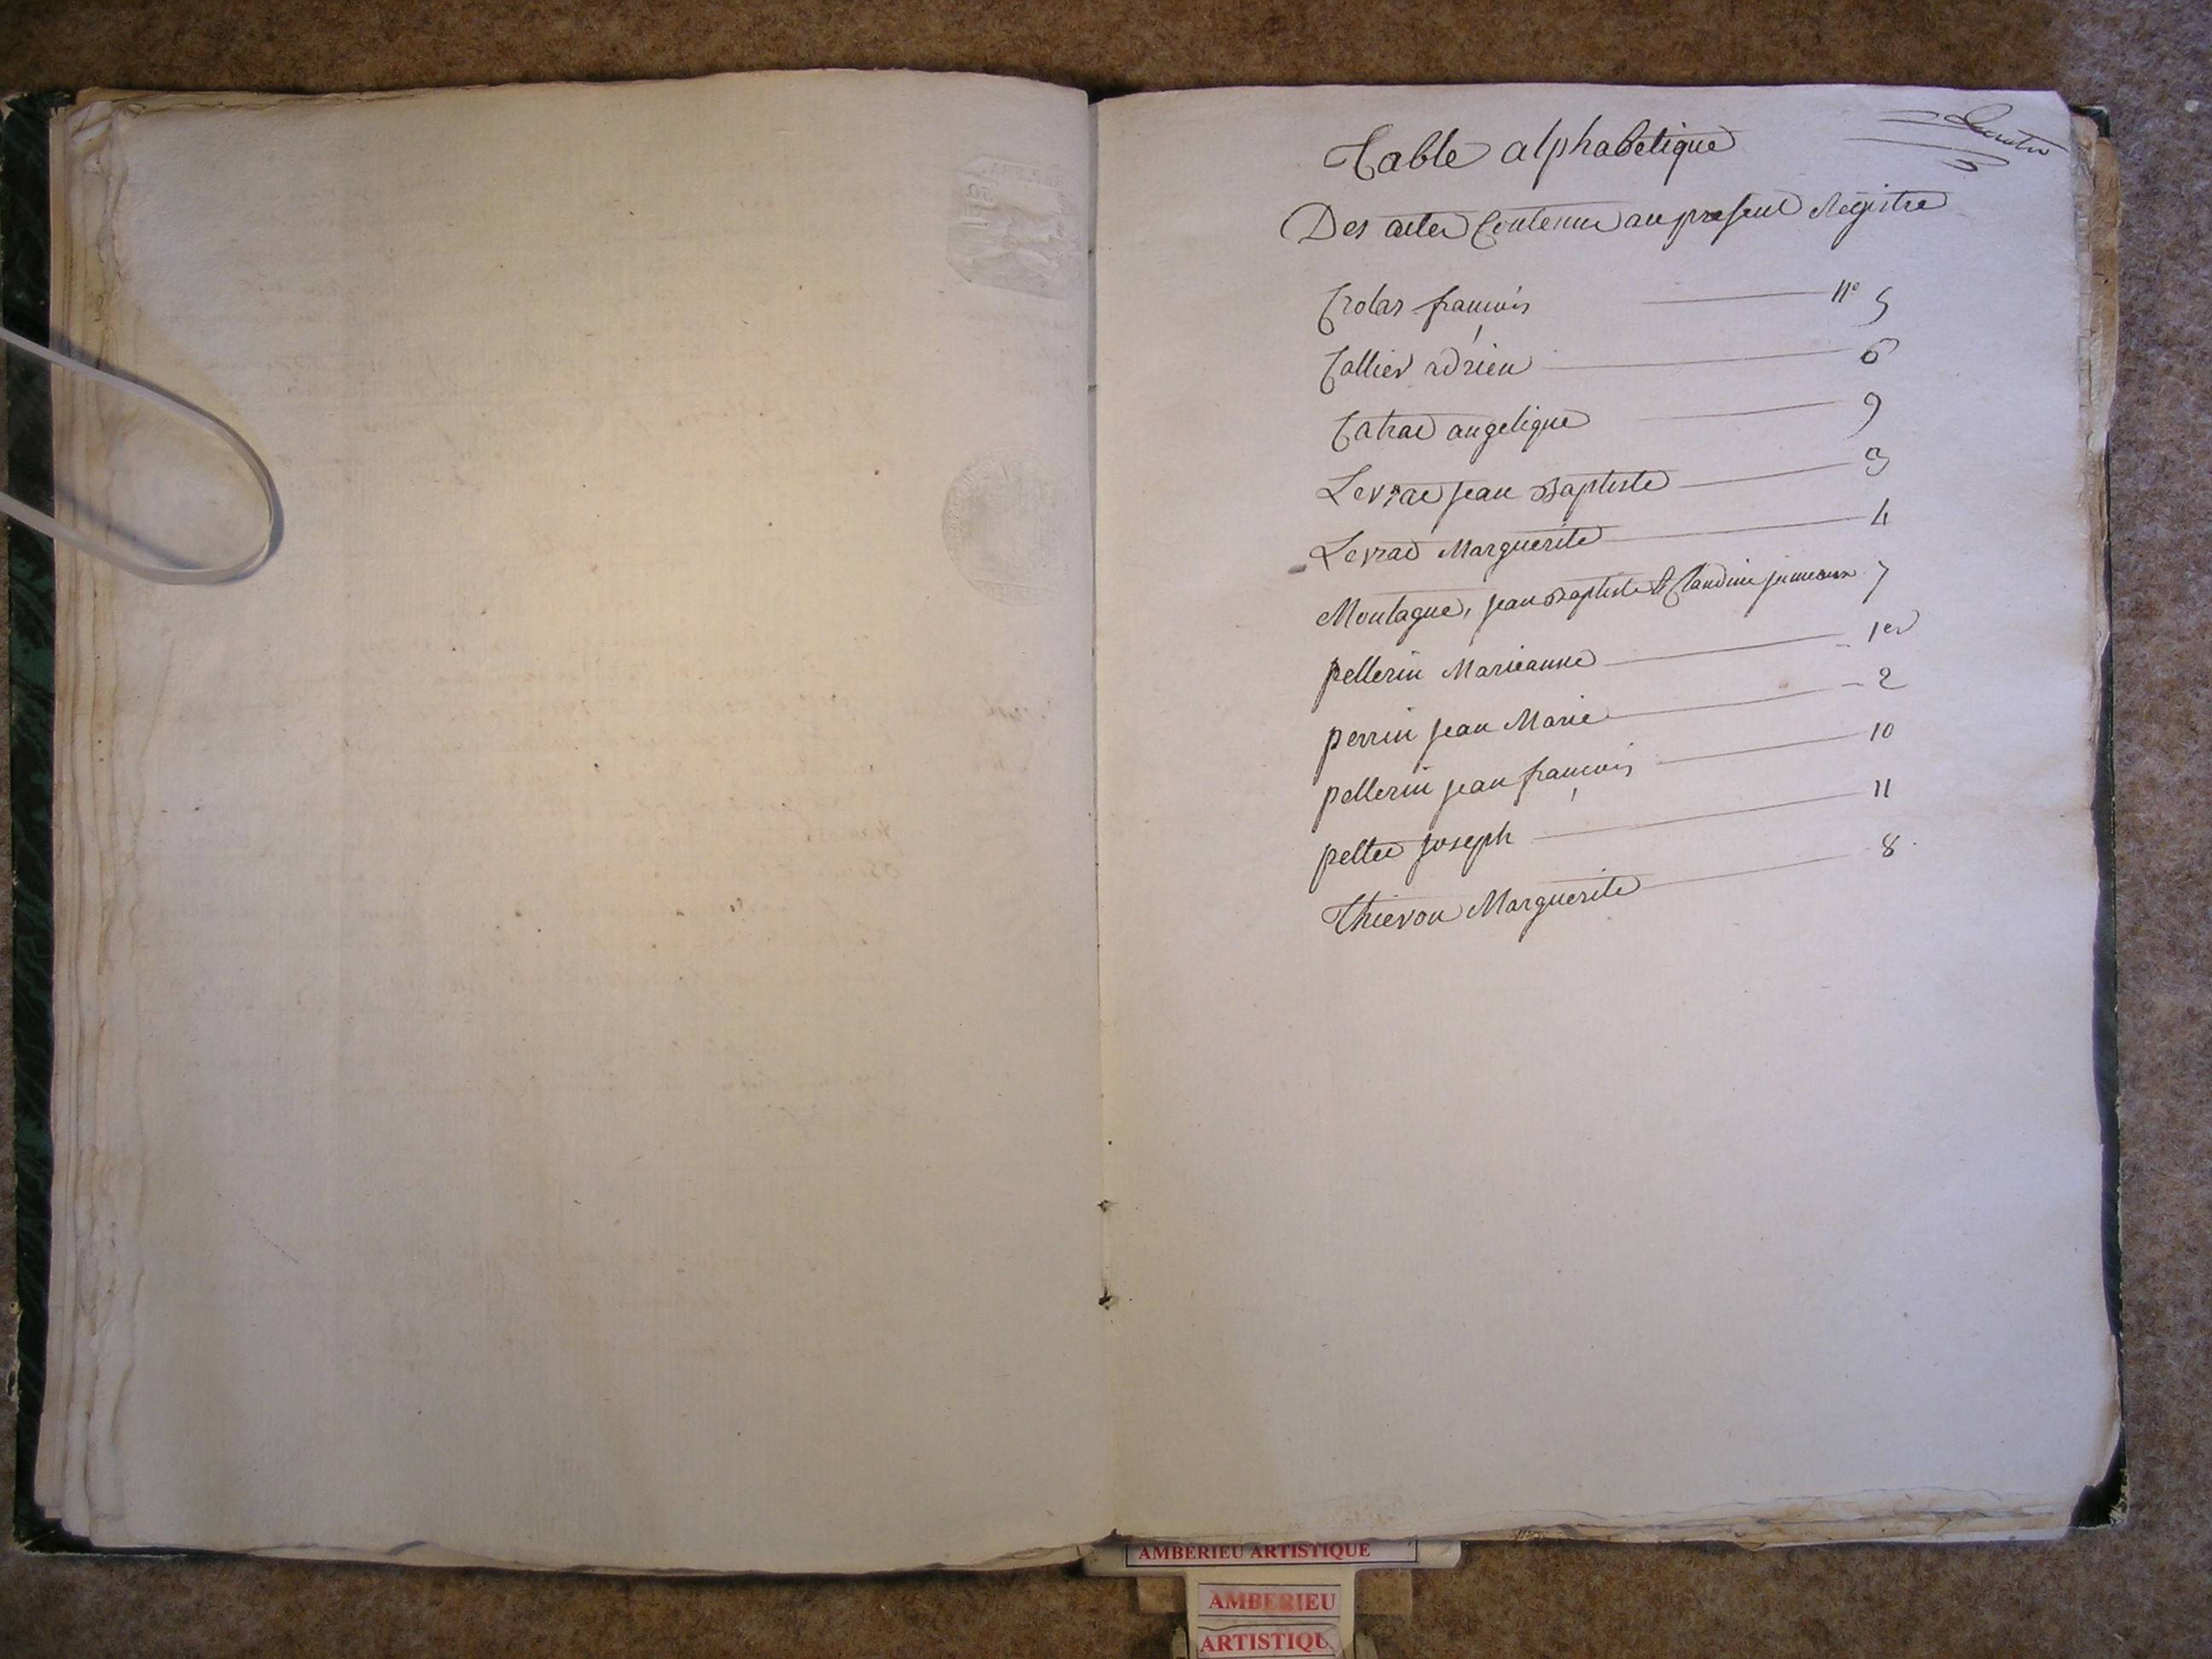 Table alphabetique
Des actes Contenus au present Registre
Crolas francois n° 5
Collier adrien 6
Catras angelique 9
Levrat Jean Baptiste 3
Levrat Marguerite 4
Montagne, Jean Baptiste & Claudine jumeaux 7
pellerin Marieanne 1er
perrin Jean Marie 2
pellerin Jean francois 10
Joseph 11
Thievon Marguerite 8
AMBERIEU ARTISTIQUE
AMBERIEU
ARTISTIQU